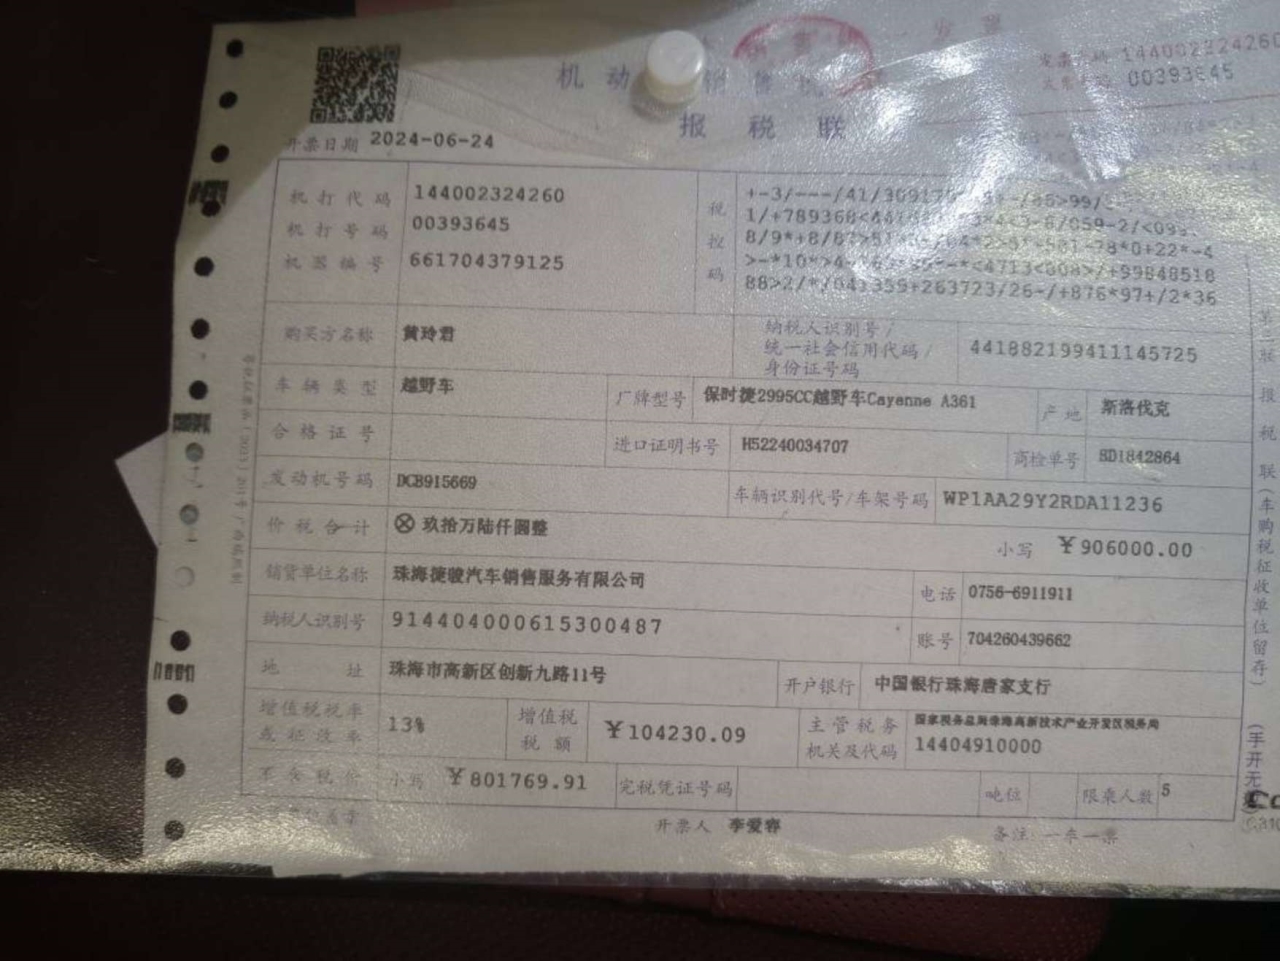 发票
机动 销售统
报税联
144002324260
00393645
开票日期 2024-06-24
机打代码 144002324260
机打号码 00393645
机器编号 661704379125
税控码
>-*10*>4
88>2/*/041359+263723/26-/+876*97+/2*36
购买方名称 黄玲君
纳税人识别号/
统一社会信用代码/
身份证号码
441882199411145725
车辆类型 越野车 厂牌型号 保时捷2995CC越野车Cayenne A361 产地 斯洛伐克
合格证号 进口证明书号 H52240034707 商检单号 BD1842864
发动机号码 DCB915669 车辆识别代号/车架号码 WP1AA29Y2RDA11236
价税合计 ⊗玖拾万陆仟圆整 小写 ¥906000.00
销货单位名称 珠海捷骏汽车销售服务有限公司 电话 0756-6911911
纳税人识别号 914404000615300487 账号 704260439662
地址 珠海市高新区创新九路11号 开户银行 中国银行珠海唐家支行
增值税税率
或征收率
13%
增值税
税额
¥104230.09
主管税务
机关及代码
国家税务总局珠海高新技术产业开发区税务局
14404910000
不含税价 小写 ¥801769.91 完税凭证号码 吨位 限乘人数 5
开票人 李爱容 备注:一车一票
第三联 报税联(车购税征收单位留存)
(手开无